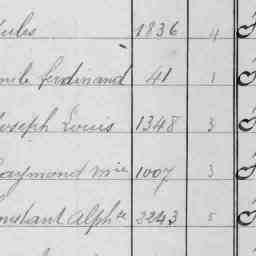 ules 1836 4
mile ferdinand 41 1
Joseph Louis 1348 3
Raymond Mie 1007 3
onstant Alphse 2243 5